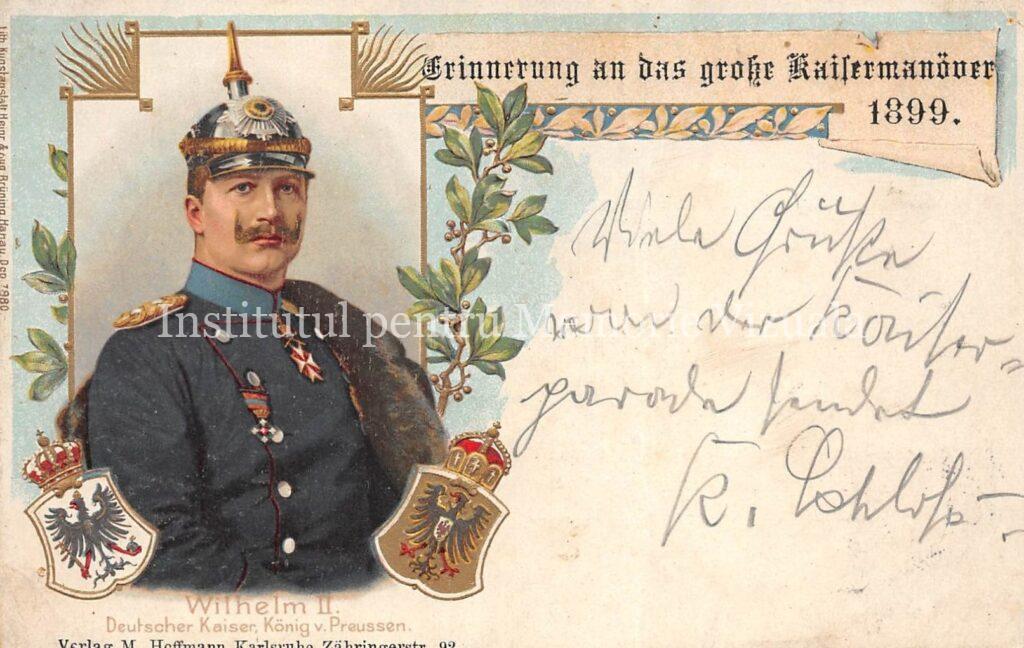 Erinnerung an das große Kaisermanöver
1899.
Viele Grüße
von der Kaiser-
parade sendet
K.
Wilhelm II.
Deutscher Kaiser, König v. Preussen.
Verlag M. Hoffmann Karlsruhe Zähringerstr. 92
Lith. Kunstanstalt Heinr. & Aug. Brüning, Hanau. Dep. 7980.
Institutul pentru